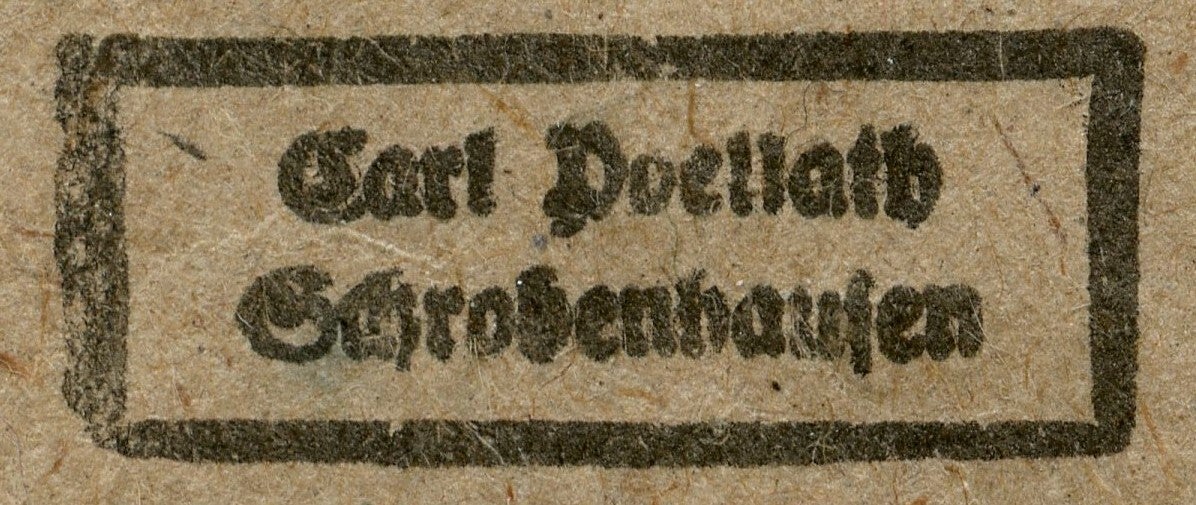 Carl Poellath
Schrobenhausen